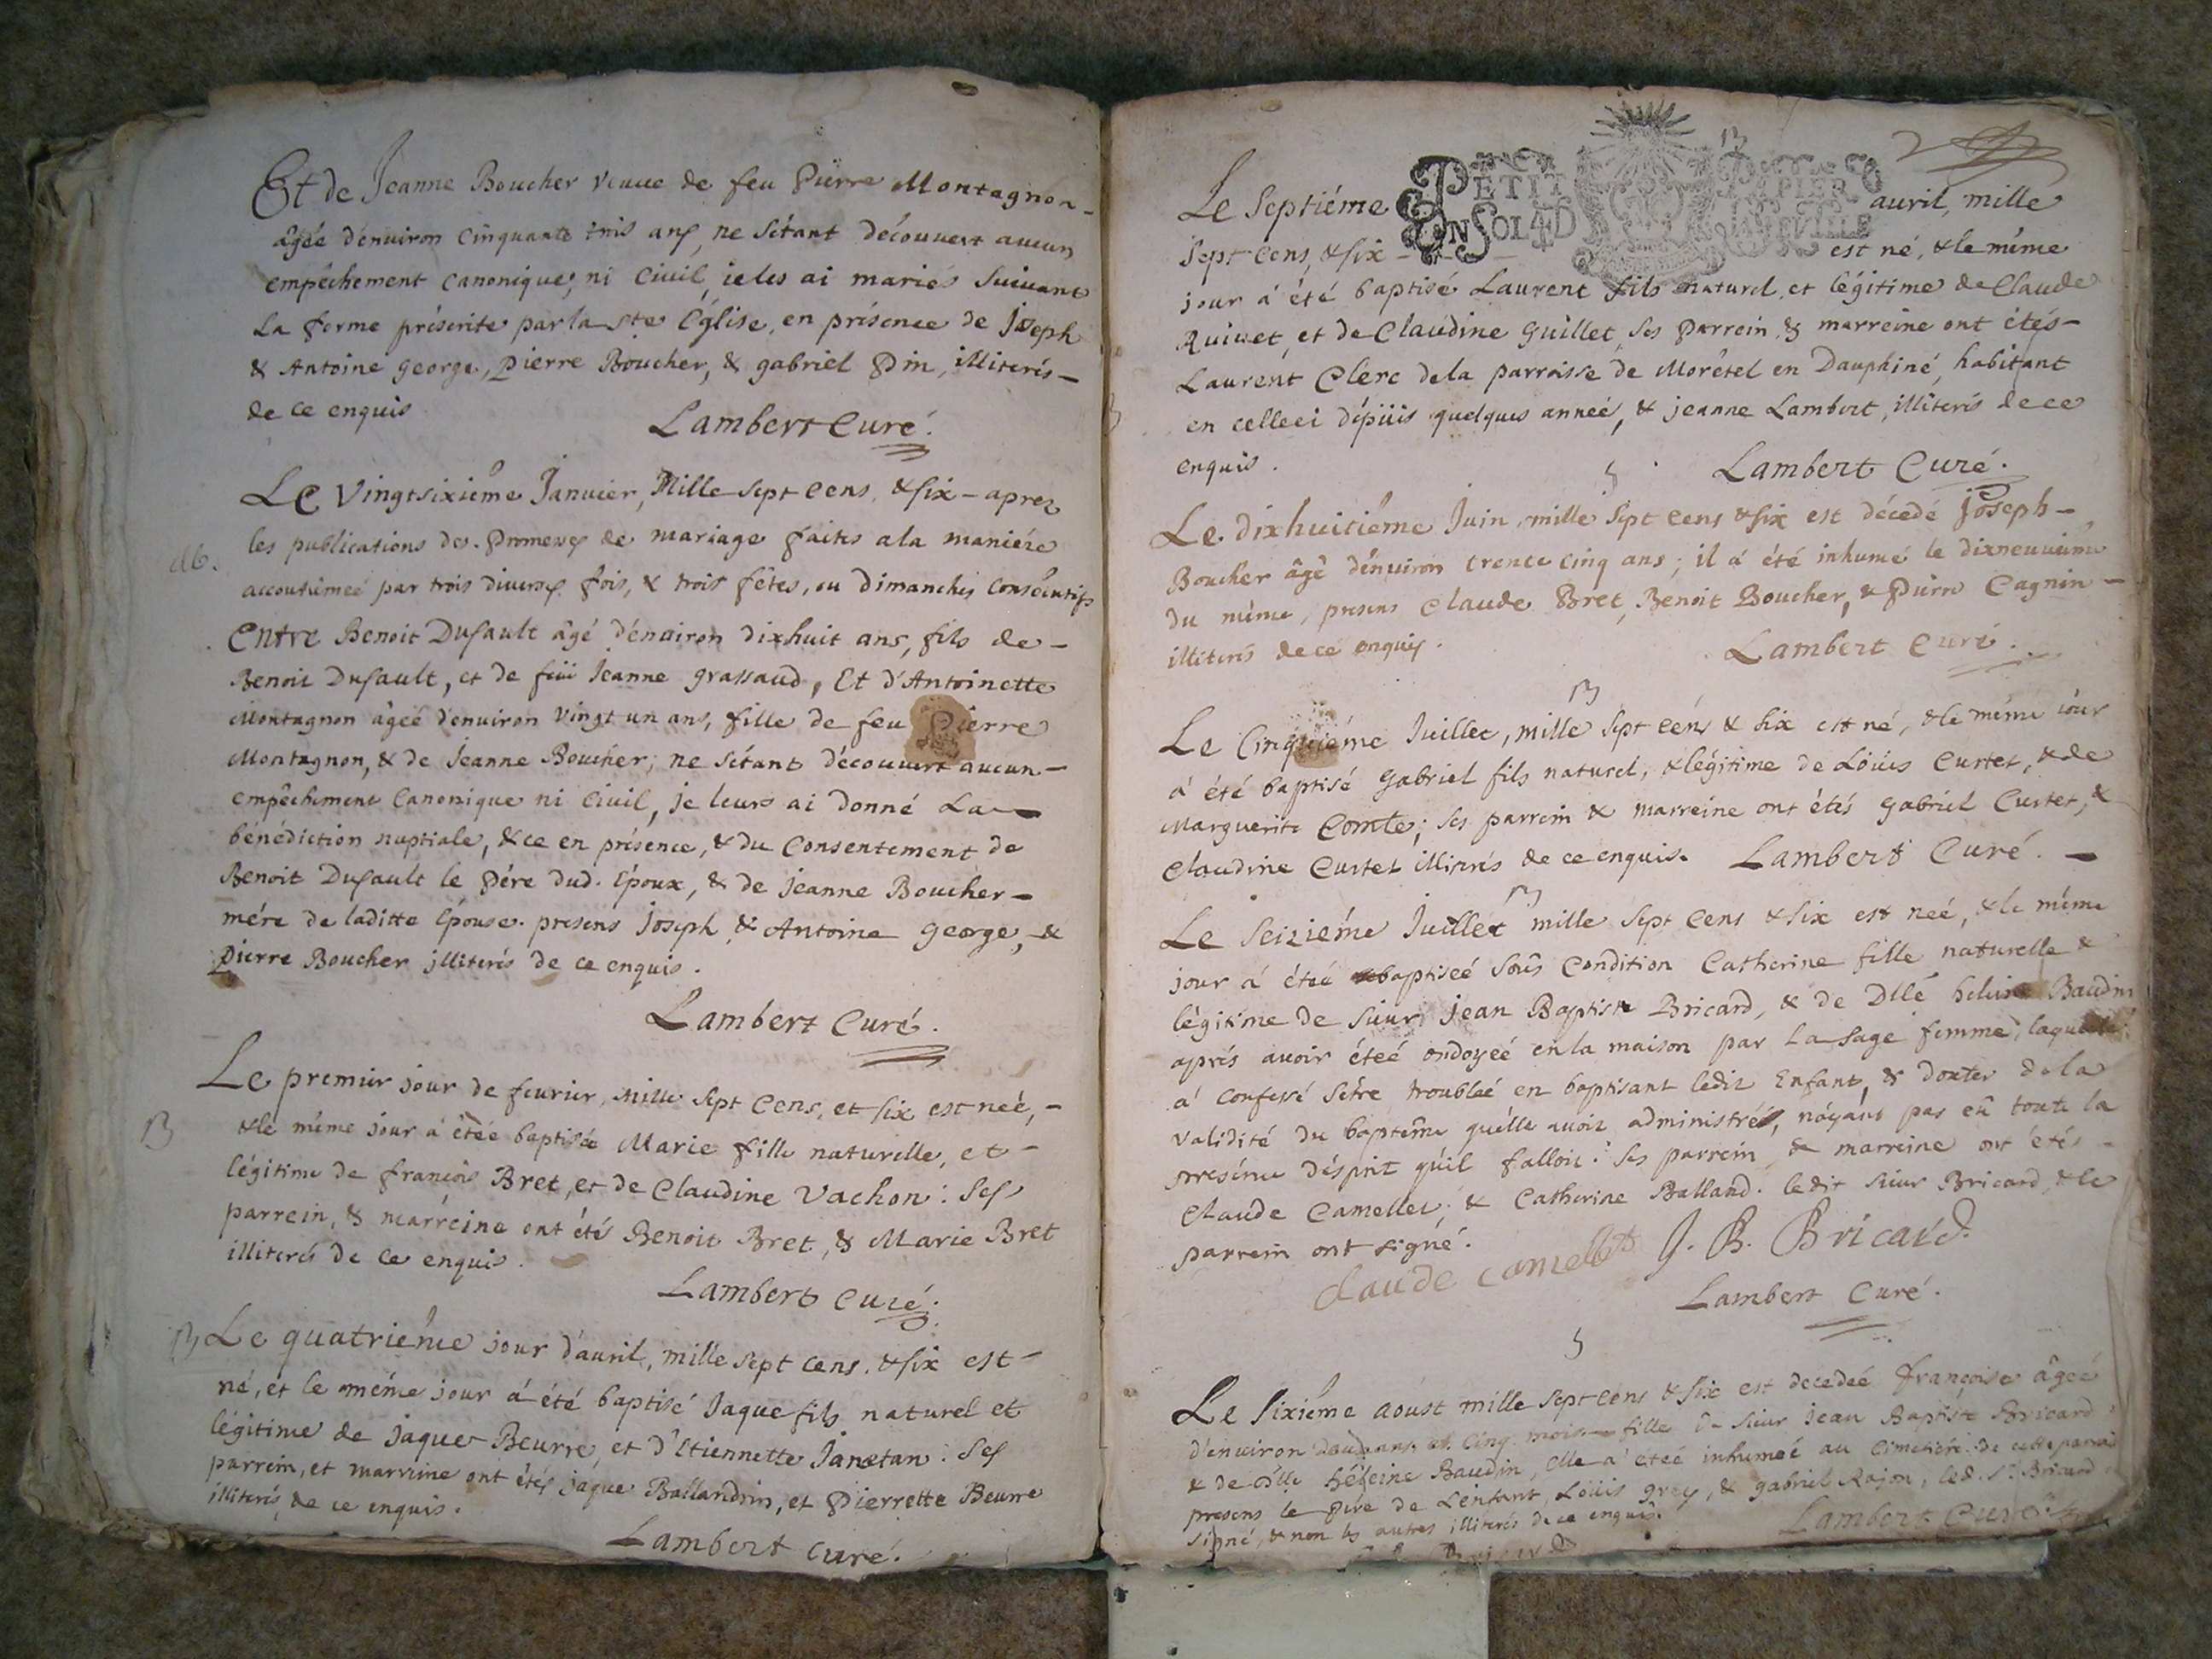 Et de Jeanne Boucher veuue de feu Pierre Montagnon -
âgée d'enuiron cinquante trois ans, ne s'étant découvert aucun
empêchement canonique, ni civil, ie les ai mariés suiuant
la forme préscrite par la Ste Église, en présence de Joseph
& Antoine george, pierre Boucher, & gabriel Pin, illiterés -
de ce enquis
Lambert Curé.
Le vingtsixiême Januier, Mille sept cens, & six - apres
les publications des promesses de mariage faites a la maniére
M.
accoutumeé par trois diuerses fois, & trois fêtes, ou Dimanches consécutifs
Entre Benoit Dufault âgé d'enuiron dixhuit ans, fils de -
Benoit Dufault, et de feüe Jeanne grassaud, Et d'Antoinette
Montagnon âgeé d'enuiron vingt un ans, fille de feu Pierre
Montagnon, & de Jeanne Boucher; ne s'étant découuert aucun -
empêchement Canonique ni civil, je leurs ai donné La -
bénédiction nuptiale, & ce en présence, & du Consentement de
Benoit Dufault le Pére dud. Epoux, & de Jeanne Boucher -
mére de laditte Epouse. presens Joseph & Antoine george, &
pierre Boucher illiterés de ce enquis.
Lambert Curé.
Le premier jour de feurier, Mille sept cens, et six est neé, -
B
& le même jour a étée baptisée Marie fille naturelle, et -
légitime de françois Bret, et de Claudine Vachon: Ses
parrein, & marreine ont étés Benoit Bret, & Marie Bret
illiterés de ce enquis.
Lambert curé.
B Le quatriême jour d'auril, mille sept cens, & six est -
né, et le même jour a été baptisé Jaque fils naturel et
légitime de jaque Beurre, et d'Etiennette Janetan: Ses
parrein, et marreine ont étés jaque Ballandrin, et Pierrette Beurre
illiterés, de ce enquis.
Lambert curé.
PETIT PAPIER
UN SOL 4 D LA FEVILLE
B
Le Septiéme auril, mille
sept cens, & six - est né, & le même
jour a été baptisé Laurent fils naturel, et légitime de Claude
Quiuet, et de Claudine guillet, ses parrein, & marreine ont étés -
Laurent Clerc de la parroisse de Morêtel en Dauphiné, habitant
en celleci dépüis quelques anneé, & jeanne Lambert, illiterés de ce
enquis.
Lambert Curé.
S
Le dixhuitiême Juin, mille sept cens & six est décedé Joseph -
Boucher âgé d'enuiron trente cinq ans; il a été inhumé le dixneuuieme
du même, presens Claude Bret, Benoit Boucher, & Pierre Cagnin -
illiterés de ce enquis.
Lambert Curé.
B
Le Cinquiéme Juillet, mille sept cens & six est né, & le même iour
a été baptisé gabriel fils naturel, & légitime de Loüis Curtet, & de
Marguerite Comte; ses parrein & marreine ont étés gabriel Curtet, &
Claudine Curtet illiterés de ce enquis. Lambert Curé. -
B
Le Seiziéme Juillet mille sept cens & six est neé, & le même
jour a éteé baptiseé sous condition Catherine fille naturelle &
légitime de sieur jean Baptiste Bricard, & de Dllé Baudin
aprés auoir éteé ondoyeé en la maison par la sage femme, laquelle
a confessé s'étre troubleé en baptisant ledit Enfant, & douter de la
validité du baptême qu'elle auoit administré, n'ayant pas eû toute la
presénce d'ésprit qu'il falloit: ses parrein, & marreine ont étés -
Claude Camellet; & Catherine Balland. ledit sieur Bricard, & le
parrein ont signé.
Claude camellet J. B. Bricard.
Lambert Curé.
S
Le sixiême aoust mille sept cens & six est decedeé françoise âgeé
d'enuiron deux ans et cinq mois fille de sieur jean Baptiste Bricard
& de dlle Baudin, elle a éteé inhumeé au cimetiére de cette
presens le pere de L'enfant, Loüis grey, & gabriel Rajon, led. Sr. Bricard
signé, & non les autres illiterés de ce enquis.
Lambert Curé